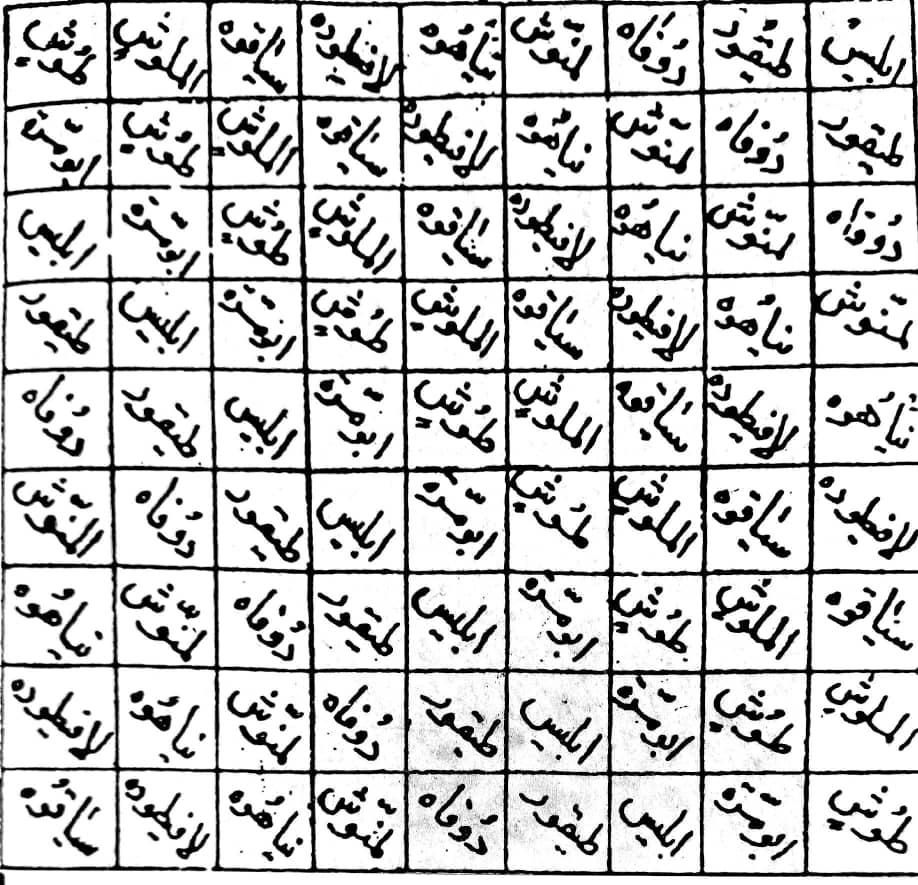 ابليس طيقور دُوفاه لمنّوش نياهُوه لافيطوده سياقوه الملوش طوُش
طيقور دُوفاه لمنّوش نياهُوه لافيطوده سياقوه الملوش طوُش ابومرّة
دُوفاه لمنّوش نياهُوه لافيطوده سياقوه الملوش طوُش ابومرّة ابليس
لمنّوش نياهُوه لافيطوده سياقوه الملوش طوُش ابومرّة ابليس طيقور
نياهُوه لافيطوده سياقوه الملوش طوُش ابومرّة ابليس طيقور دُوفاه
لافيطوده سياقوه الملوش طوُش ابومرّة ابليس طيقور دُوفاه المنّوش
سياقوه الملوش طوُش ابومرّة ابليس طيقور دُوفاه لمنّوش نياهُوه
الملوش طوُش ابومرّة ابليس طيقور دُوفاه لمنّوش نياهُوه لافيطوده
طوُش ابومرّة ابليس طيقور دُوفاه لمنّوش نياهُوه لافيطوده سياقوُه